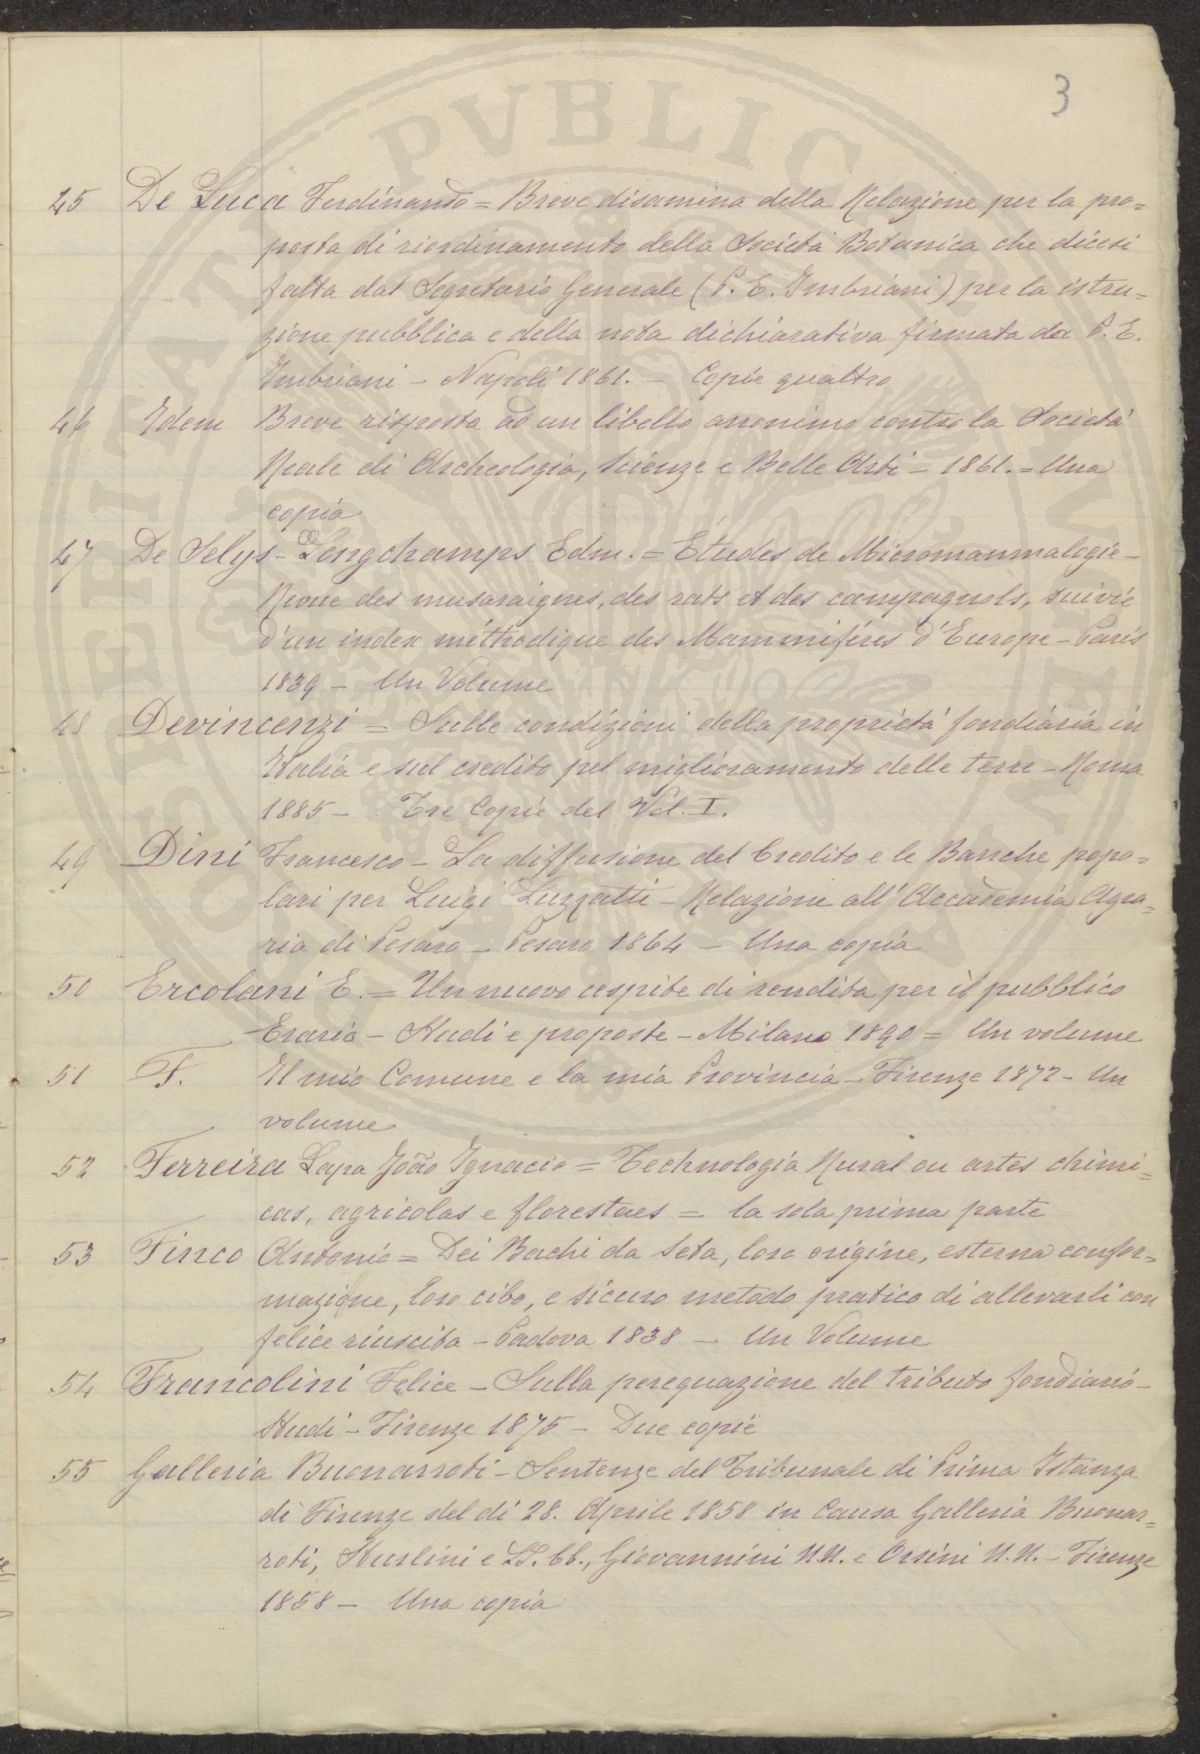 3
45 De Luca Ferdinando = Breve disamina della Relazione per la pro=
posta di riordinamento della Società Botanica che dicesi
fatta dal Segretario Generale (P. E. Imbriani) per la istru=
zione pubblica e della nota dichiarativa firmata da P. E.
Imbriani - Napoli 1861. - Copie quattro
46 Idem Breve risposta ad un libello anonimo contro la Società
Reale di Archeologia, Scienze e Belle Arti - 1861. = Una
copia
47 De Selys-Longchamps Edm. = Études de Micromammalogie -
Revue des musaraignes, des rats et des campagnols, suivie
d'un index méthodique des Mammifères d'Europe - Paris
1839 - Un Volume
48 Devincenzi = Sulle condizioni della proprietà fondiaria in
Italia e sul credito pel miglioramento delle terre - Roma
1885 - Tre Copie del Vol. I.
49 Dini Francesco - La diffusione del Credito e le Banche popo=
lari per Luigi Luzzatti - Relazione all'Accademia Agra=
ria di Pesaro - Pesaro 1864 - Una copia
50 Ercolani E. = Un nuovo cespite di rendita per il pubblico
Erario - Studi e proposte - Milano 1890 = Un volume
51 F. Il mio Comune e la mia Provincia - Firenze 1872 - Un
volume
52 Ferreira Lapa João Ignacio = Technologia Rural ou artes chimi=
cas, agricolas e florestaes = la sola prima parte
53 Finco Antonio = Dei Bachi da Seta, loro origine, esterna confor=
mazione, loro cibo, e sicuro metodo pratico di allevarli con
felice riuscita - Padova 1838 - Un Volume
54 Francolini Felice - Sulla perequazione del tributo fondiario -
Studi - Firenze 1875 - Due copie
55 Galleria Buonarroti - Sentenze del Tribunale di Prima Istanza
di Firenze del di 28. Aprile 1858 in Causa Galleria Buonar=
roti, Sturlini e LL. CC., Giovannini N.N. e Orsini N.N. - Firenze
1858 - Una copia